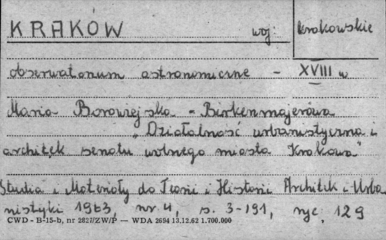 KRAKÓW woj: krakowskie
obserwatorium astronomiczne - XVIII w
Maria Borowiejska - Birkenmajerowa
"Działalność urbanistyczna i
architek senatu wolnego miasta Krakowa"
Studia i Materiały do Teorii i Historii Architek i Urba
nistyki 1963 nr 4, s. 3-191, ryc. 129
CWD - B-15-b, nr 2827/ZW/P — WDA 2654 13.12.62 1.700.000